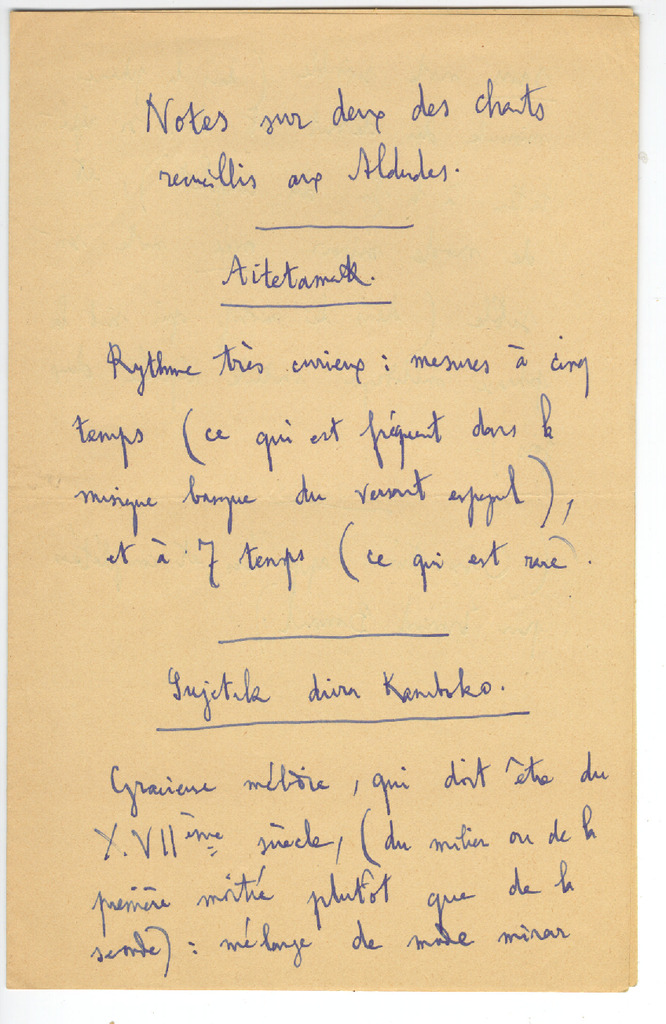 Notes sur deux des chants
recueillis aux Aldudes.
Aitetamak.
Rythme très curieux : mesures à cinq
temps (ce qui est fréquent dans la
musique basque du versant espagnol),
et à 7 temps (ce qui est rare.
dira Kanboko.
Gracieuse mélodie, qui doit être du
XVIIème siècle, (du milieu ou de la
première moitié plutôt que de la
seconde) : mélange de mode mineur